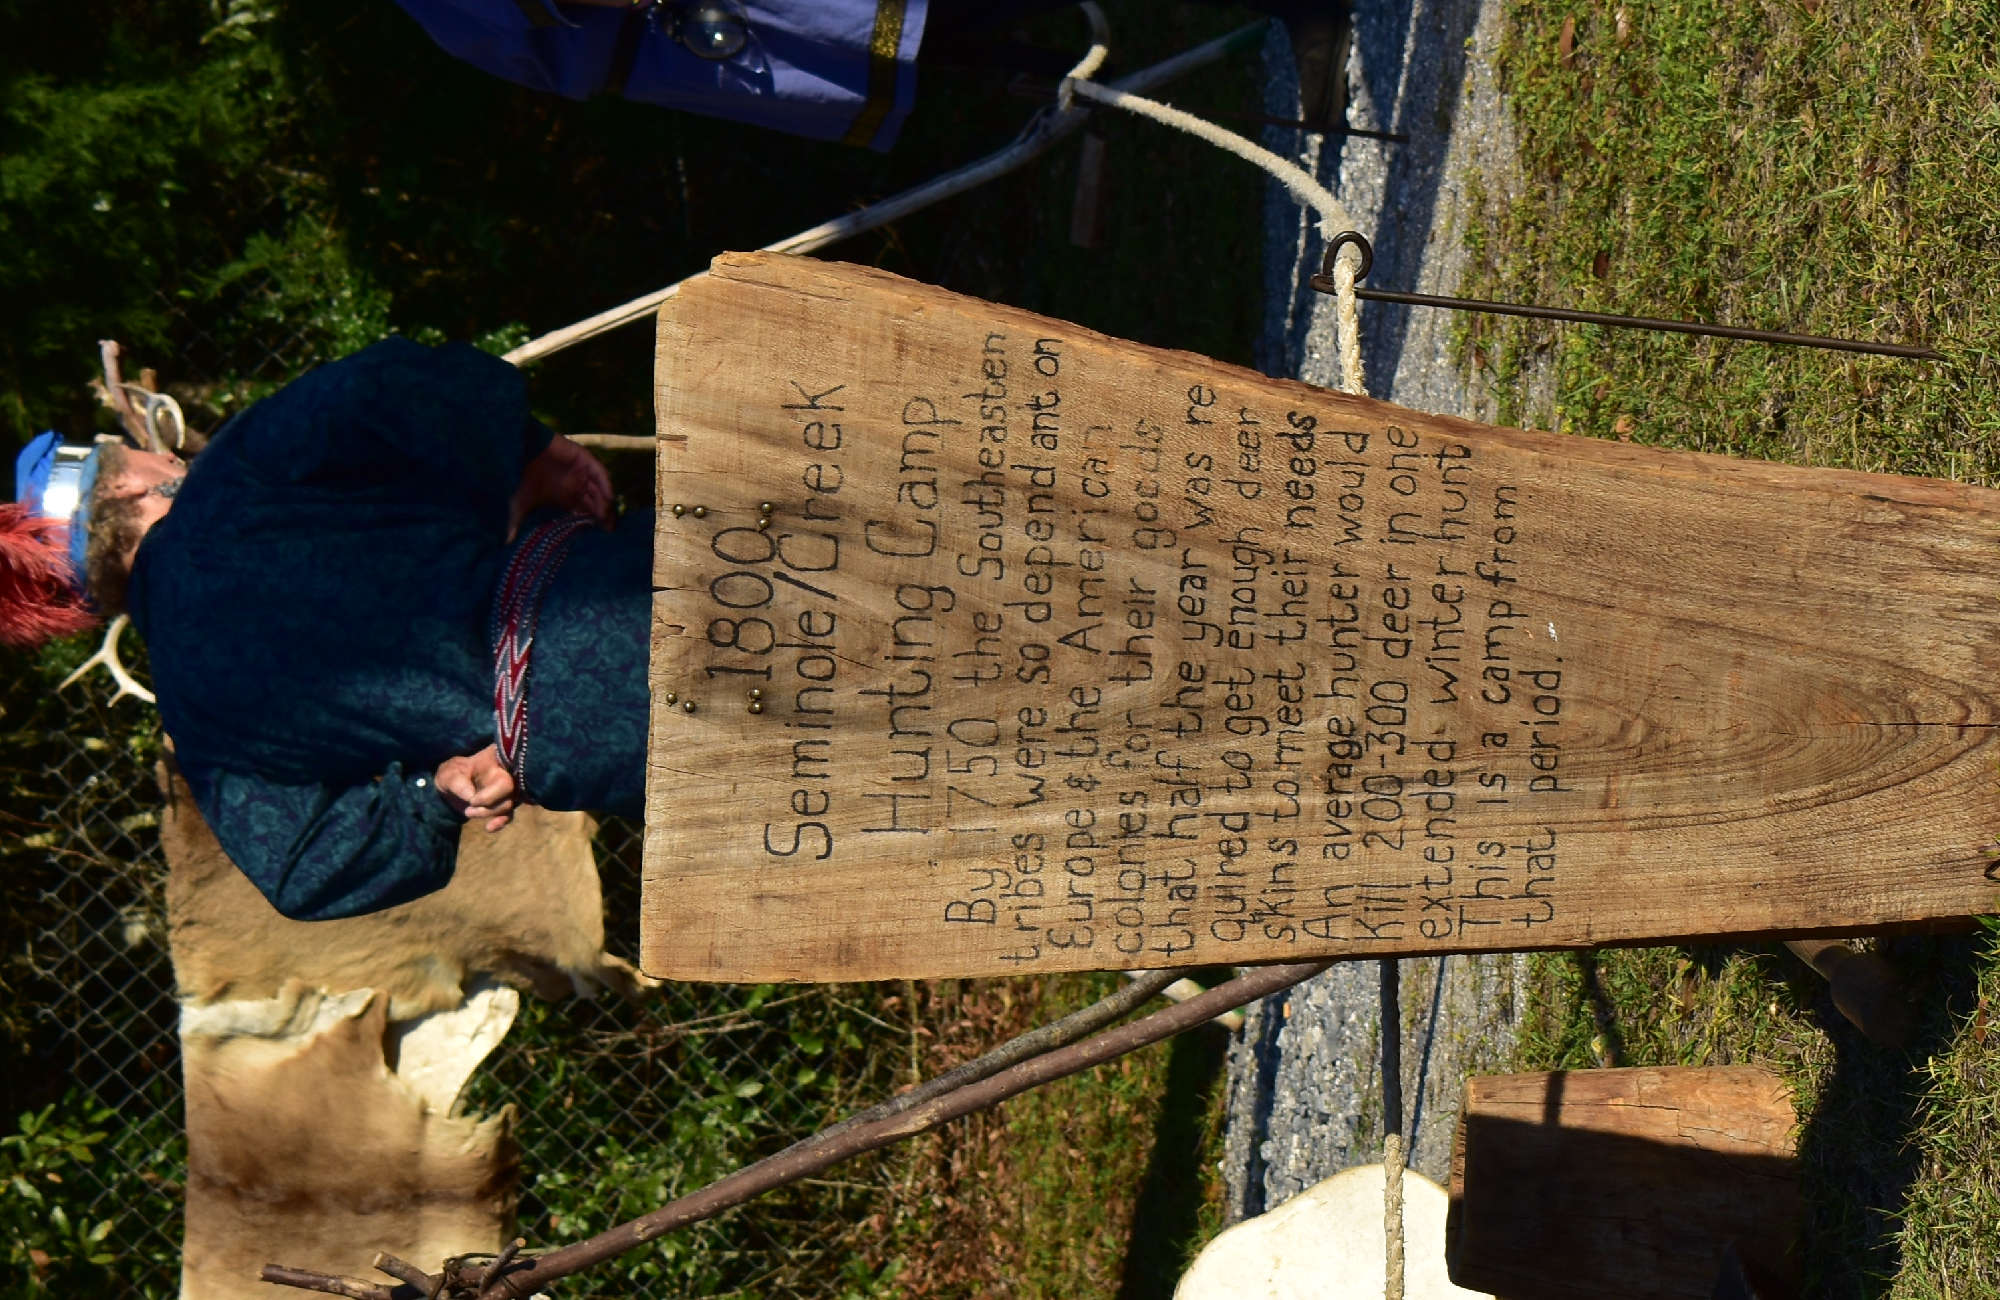 1800
Seminole/Creek
Hunting Camp
By 1750 the Southeasten
tribes were so dependant on
Europe & the American
colonies for their goods
that half the year was re
quired to get enough deer
skins to meet their needs
An average hunter would
Kill 200-300 deer in one
extended winter hunt
This is a camp from
that period.